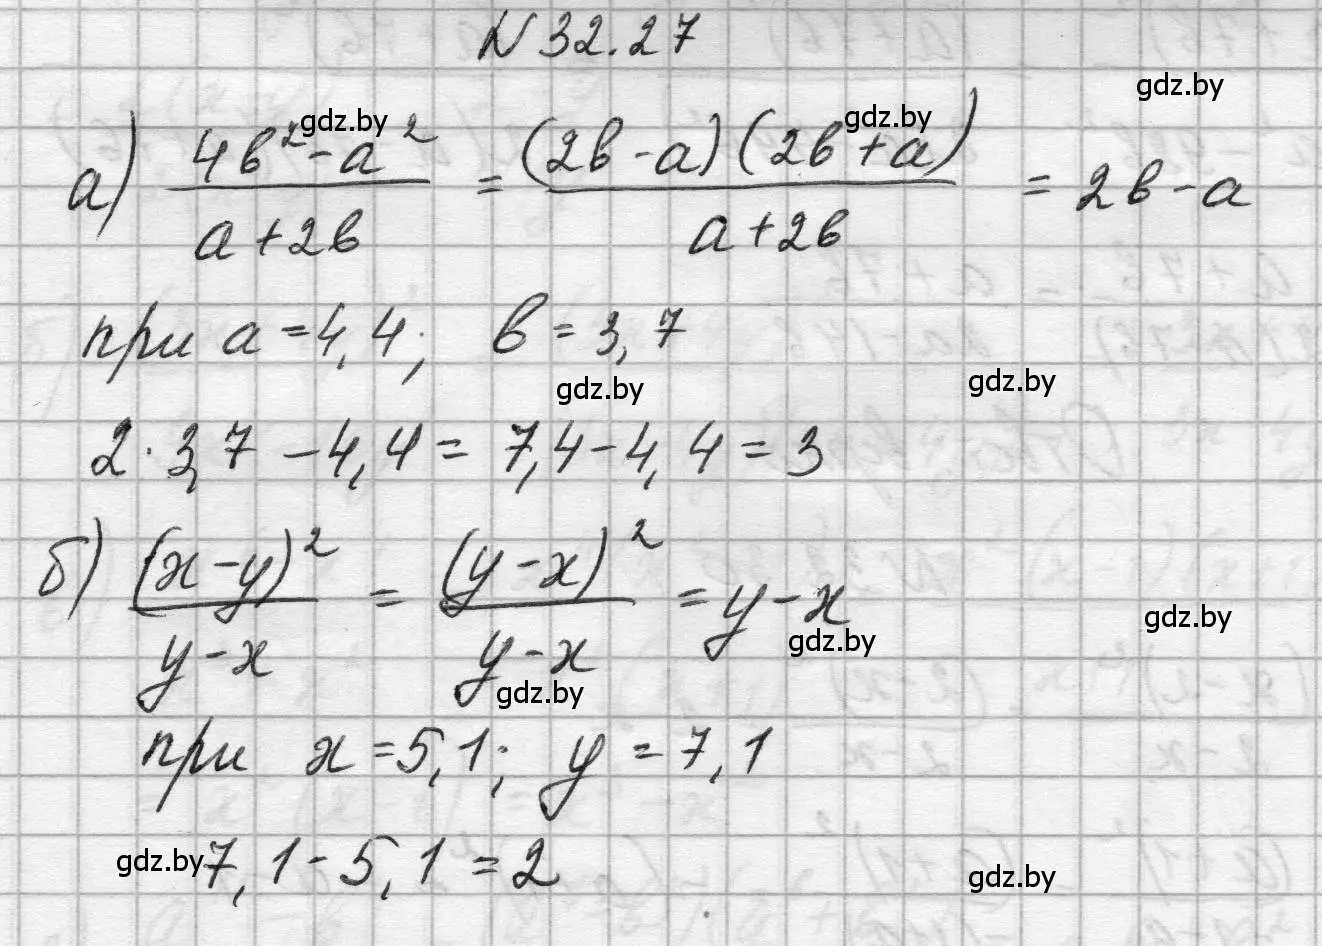 N 32.27
gdz.by
а) (4в² - а²)/(а + 2в) = ((2в - а)(2в + а))/(а + 2в) = 2в - а
gdz.by
gdz.by
при а = 4,4; в = 3,7
gdz.by
gdz.by
2 · 3,7 - 4,4 = 7,4 - 4,4 = 3
б) (x - y)²/(y - x) = (y - x)²/(y - x) = y - x
gdz.by
gdz.by
gdz.by
при x = 5,1; y = 7,1
gdz.by
7,1 - 5,1 = 2
gdz.by